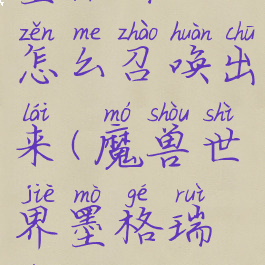 zěn me zhào huàn chū
怎么召唤出
lái mó shòu shì
来(魔兽世
jiè mò gé ruì
界墨格瑞